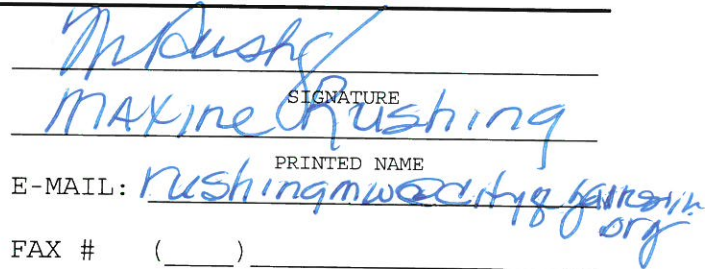 M Rushing
SIGNATURE
Maxine Rushing
PRINTED NAME
E-MAIL: rushingmw@cityof
org
FAX # (____)